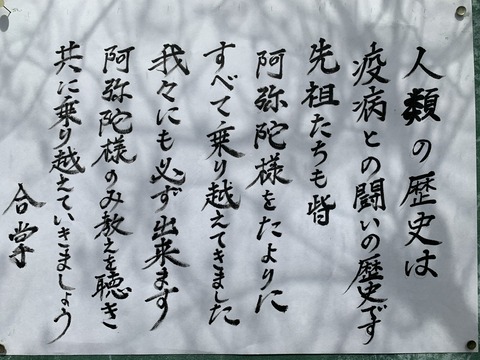 人類の歴史は
疫病との闘いの歴史です
先祖たちも皆
阿弥陀様をたよりに
すべて乗り越えてきました
我々にも必ず出来ます
阿弥陀様のみ教えを聴き
共に乗り越えていきましょう
合掌